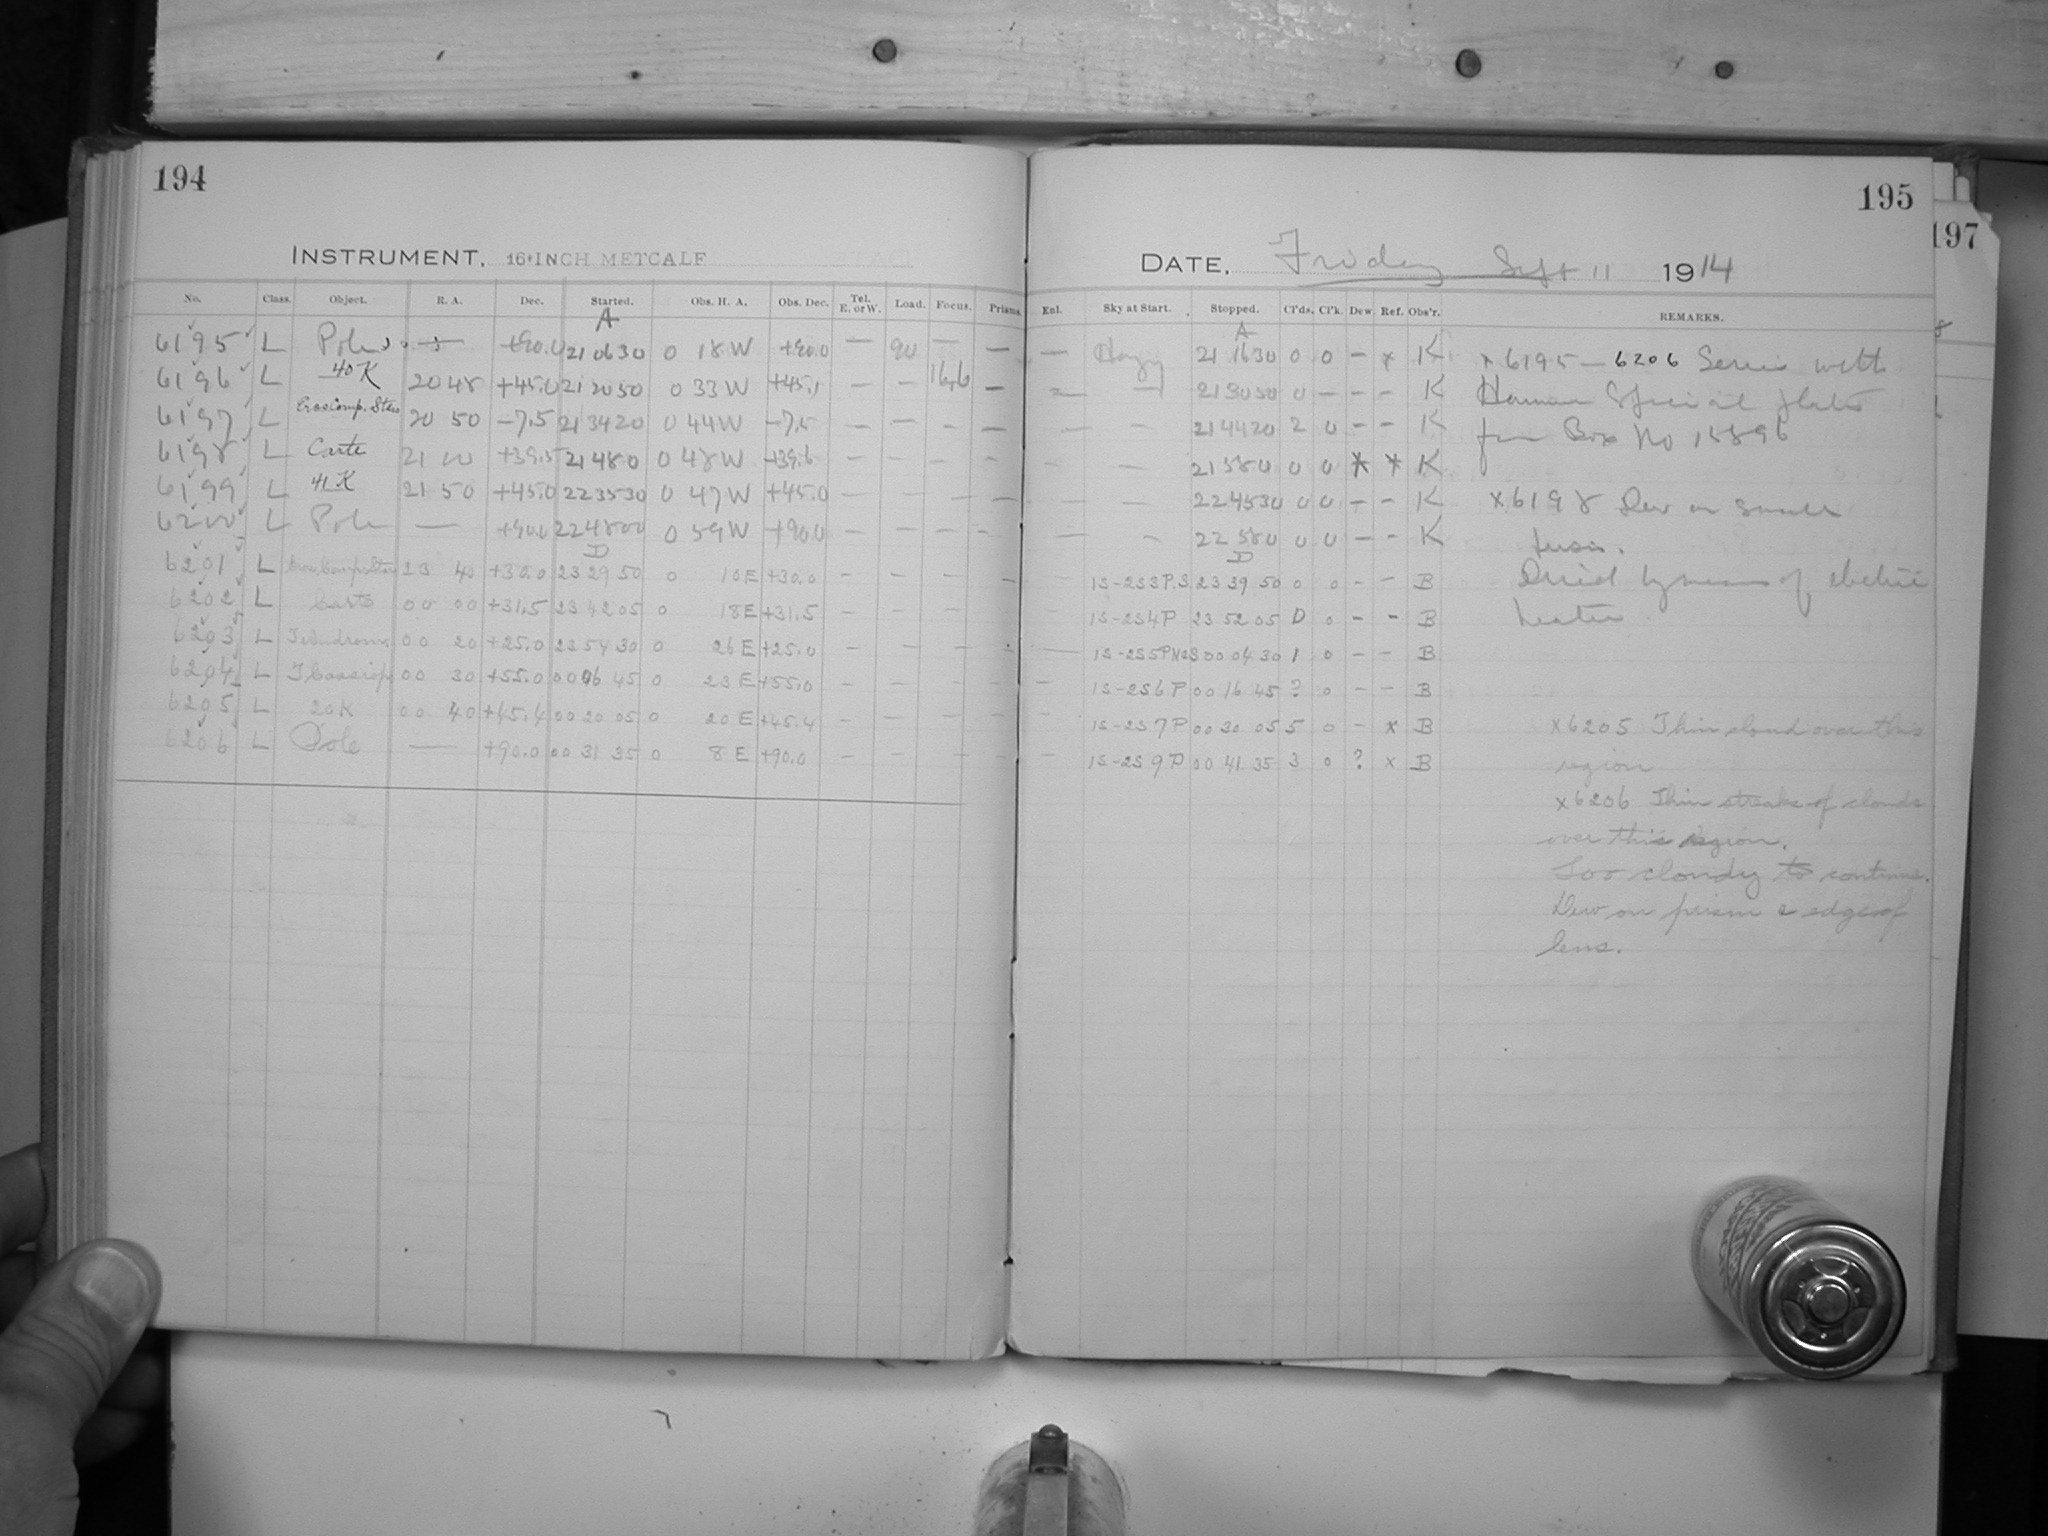 194
INSTRUMENT, 16-INCH METCALF
No. Class. Object. R. A. Dec. Started. Obs. H. A. Obs. Dec. Tel. E. or W. Load. Focus. Prisms.
A
6195 L Pole +90.0 21 06 30 0 18 W +90.0 — 90 — —
6196 L 40 K 20 48 +45.0 21 20 50 0 33 W +45.1 — — 16.6 —
6197 L Eros Comp. Stars 20 50 -7.5 21 34 20 0 44 W -7.5 — — — —
6198 L Carte 21 00 +39.5 21 48 0 0 48 W +39.6 — — — —
6199 L 41 K 21 50 +45.0 22 35 30 0 47 W +45.0 — — — —
6200 L Pole — +90.0 22 48 00 0 59 W +90.0 — — — —
D
6201 L Eros Comp. Stars 23 40 +30.0 23 29 50 0 10 E +30.0 — — — —
6202 L Carte 00 00 +31.5 23 42 05 0 18 E +31.5 — — — —
6203 L T Androm. 00 20 +25.0 23 54 30 0 26 E +25.0 — — — —
6204 L T Cassiop. 00 30 +55.0 00 06 45 0 23 E +55.0 — — — —
6205 L 20 K 00 40 +45.4 00 20 05 0 20 E +45.4 — — — —
6206 L Pole — +90.0 00 31 35 0 8 E +90.0 — — — —
195
197
DATE, Friday Sept 11 1914
Enl. Sky at Start. Stopped. Cl'ds. Cl'k. Dew. Ref. Obs'r. REMARKS.
A
— Hazy 21 16 30 0 0 — x K x 6195 — 6206 Series with
— 21 30 50 0 — — — K Hammer Special plates
— — 21 44 20 2 0 — — K from Box No 15896
— 21 58 0 0 0 * * K
— — 22 45 30 0 0 — — K x 6198 Dew on small
— — 22 58 0 0 0 — — K prism.
D
1S-2S3P.S 23 39 50 0 0 — — B Dried by means of electric
1S-2S4P 23 52 05 D 0 — — B heater
1S-2S5P 00 04 30 1 0 — — B
1S-2S6P 00 16 45 ? 0 — — B
1S-2S7P 00 30 05 5 0 — x B x 6205 Thin cloud over this
1S-2S9P 00 41 35 3 0 ? x B region
x 6206 Thin streaks of clouds
over this region.
Too cloudy to continue.
Dew on prism & edges of
lens.